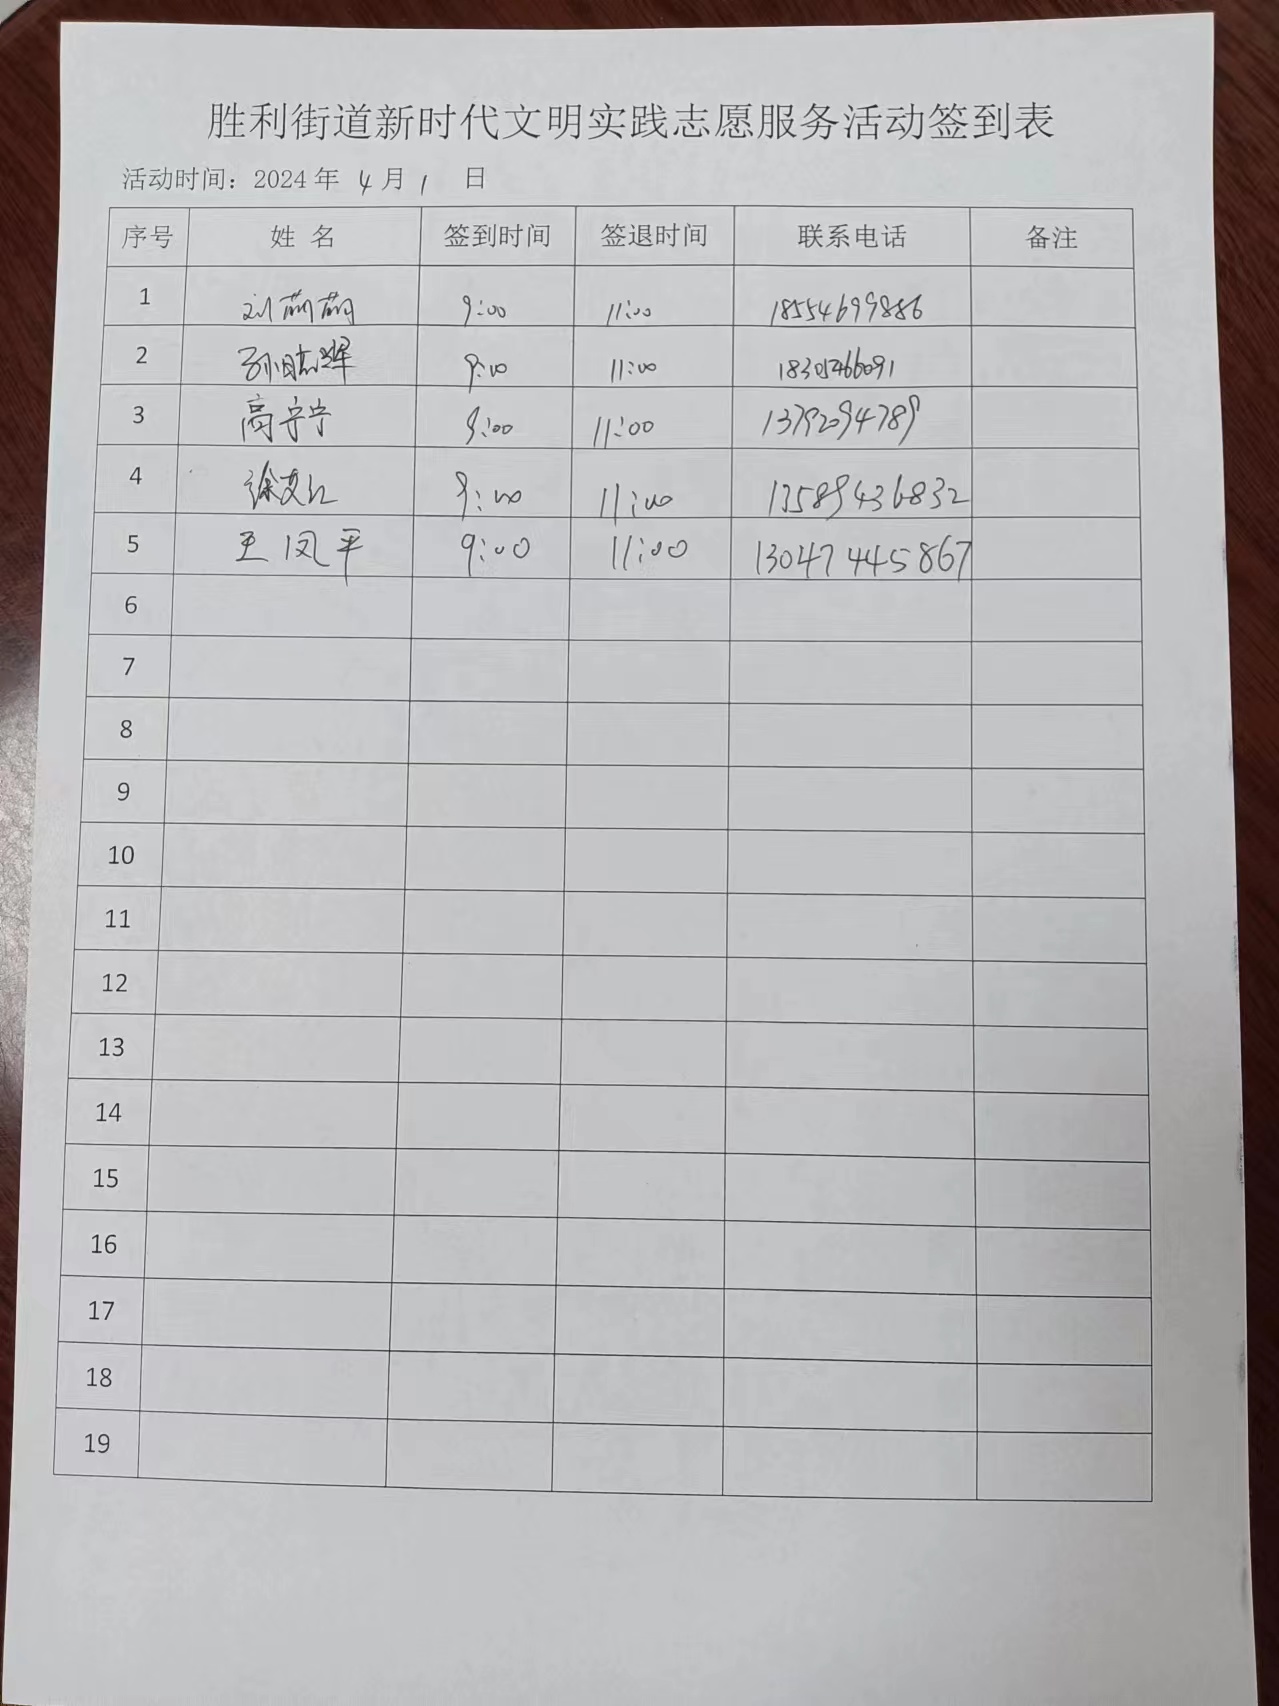 胜利街道新时代文明实践志愿服务活动签到表
活动时间：2024 年 4 月 1 日
序号 姓 名 签到时间 签退时间 联系电话 备注
1 刘萌萌 9:00 11:00 18554699886
2 9:00 11:00 18305466091
3 高宁宁 9:00 11:00 13792094789
4 徐艾红 9:00 11:00 13589436832
5 王凤平 9:00 11:00 13047445867
6
7
8
9
10
11
12
13
14
15
16
17
18
19